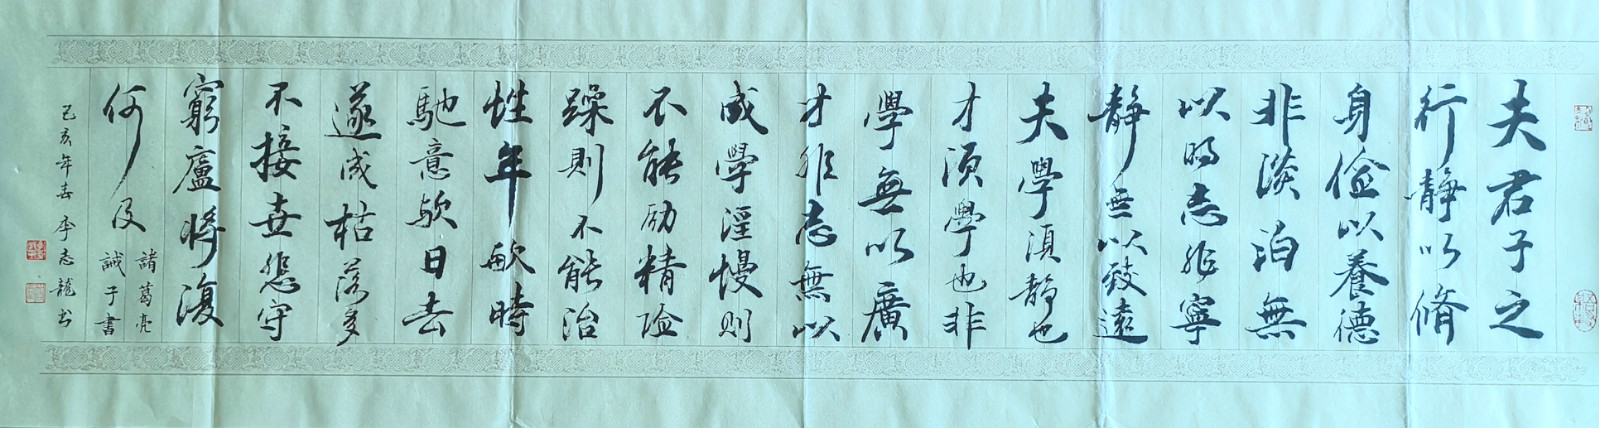 夫君子之
行静以脩
身儉以養德
非淡泊無
以明志非寧
静無以致遠
夫學須静也
才須學也非
學無以廣
才非志無以
成學淫慢則
不能励精险
躁則不能治
性年歟時
馳意歟日去
遂成枯落多
不接世悲守
窮廬将復
何及
諸葛亮
誡子書
己亥年春李志龍书